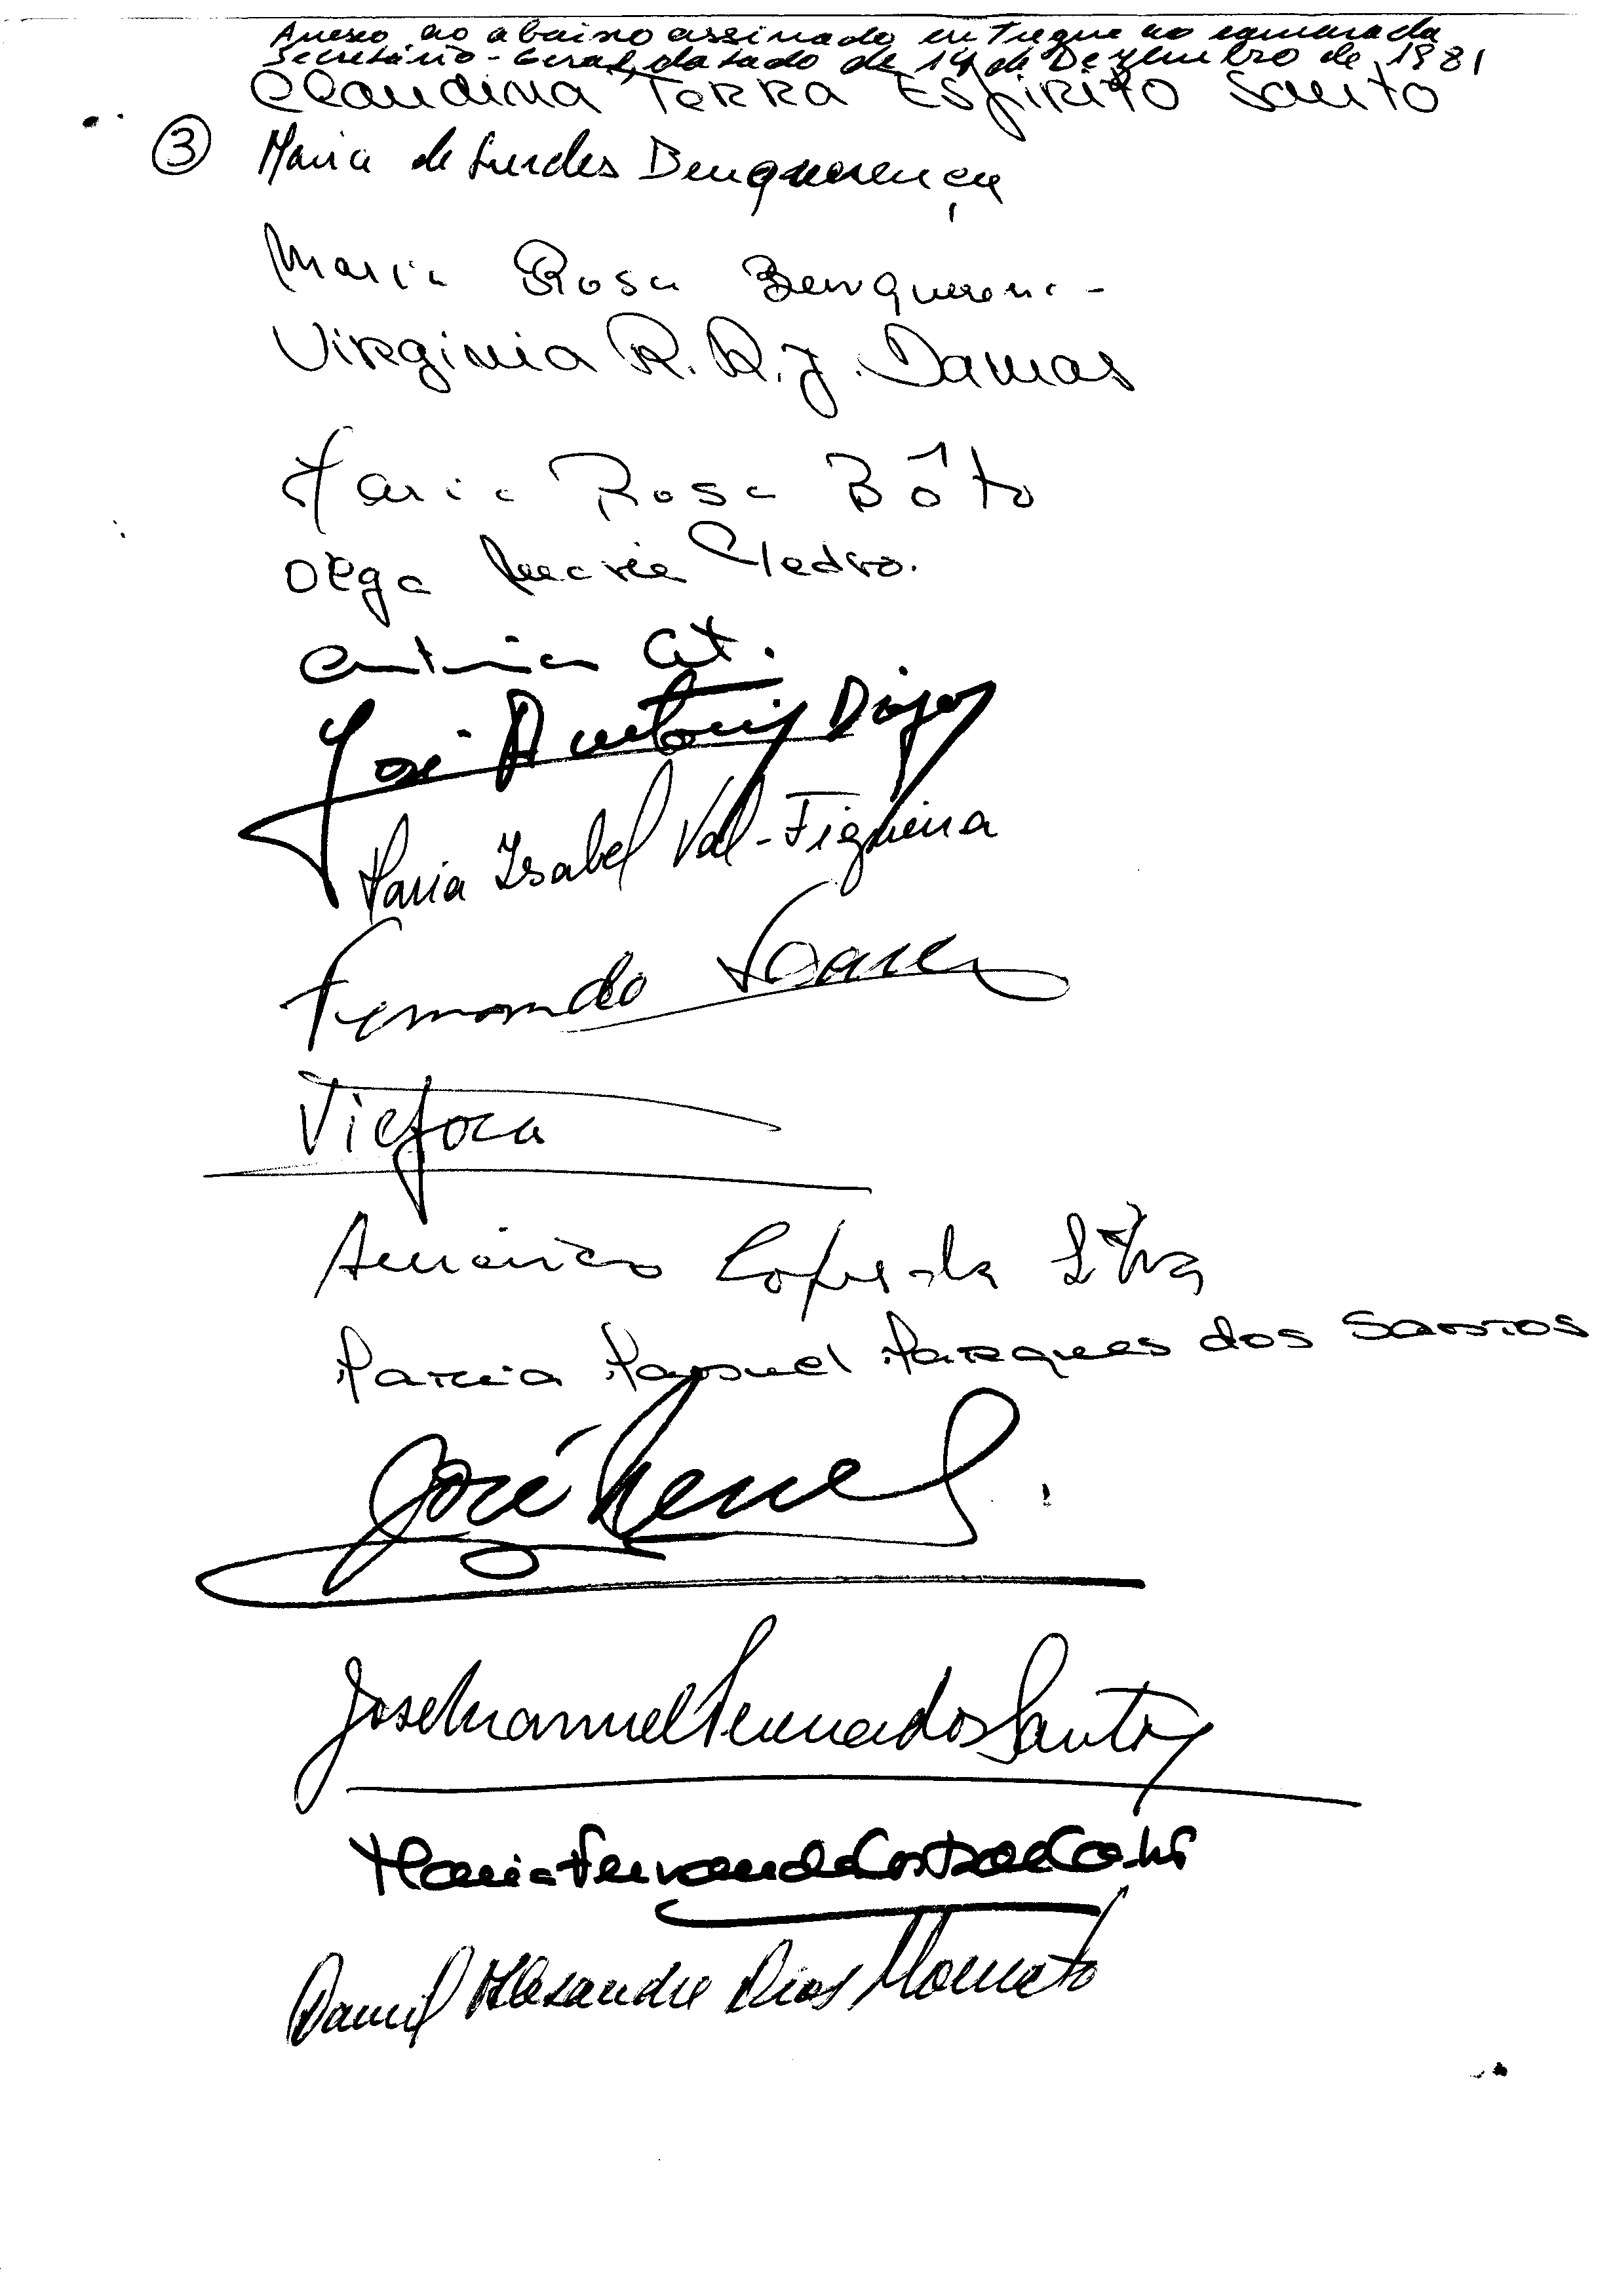 Anexo ao abaixo assinado entregue ao camarada
Secretário-Geral, datado de 14 de Dezembro de 1981
Claudina Terra Espirito Santo
3 Maria de Lurdes Benquerença
Maria Rosa Benquerenc
Virginia R. R. J. Damas
Maria Rosa Bôto
Olga Maria Pedro.
José Antonio
Maria Isabel Val-Figueira
Fernando Soares
Américo Lopes da Silva
Maria Manuel Marques dos Santos
José
José Manuel dos Santos
Maria Fernanda Costa
Daniel Alexandre Dias